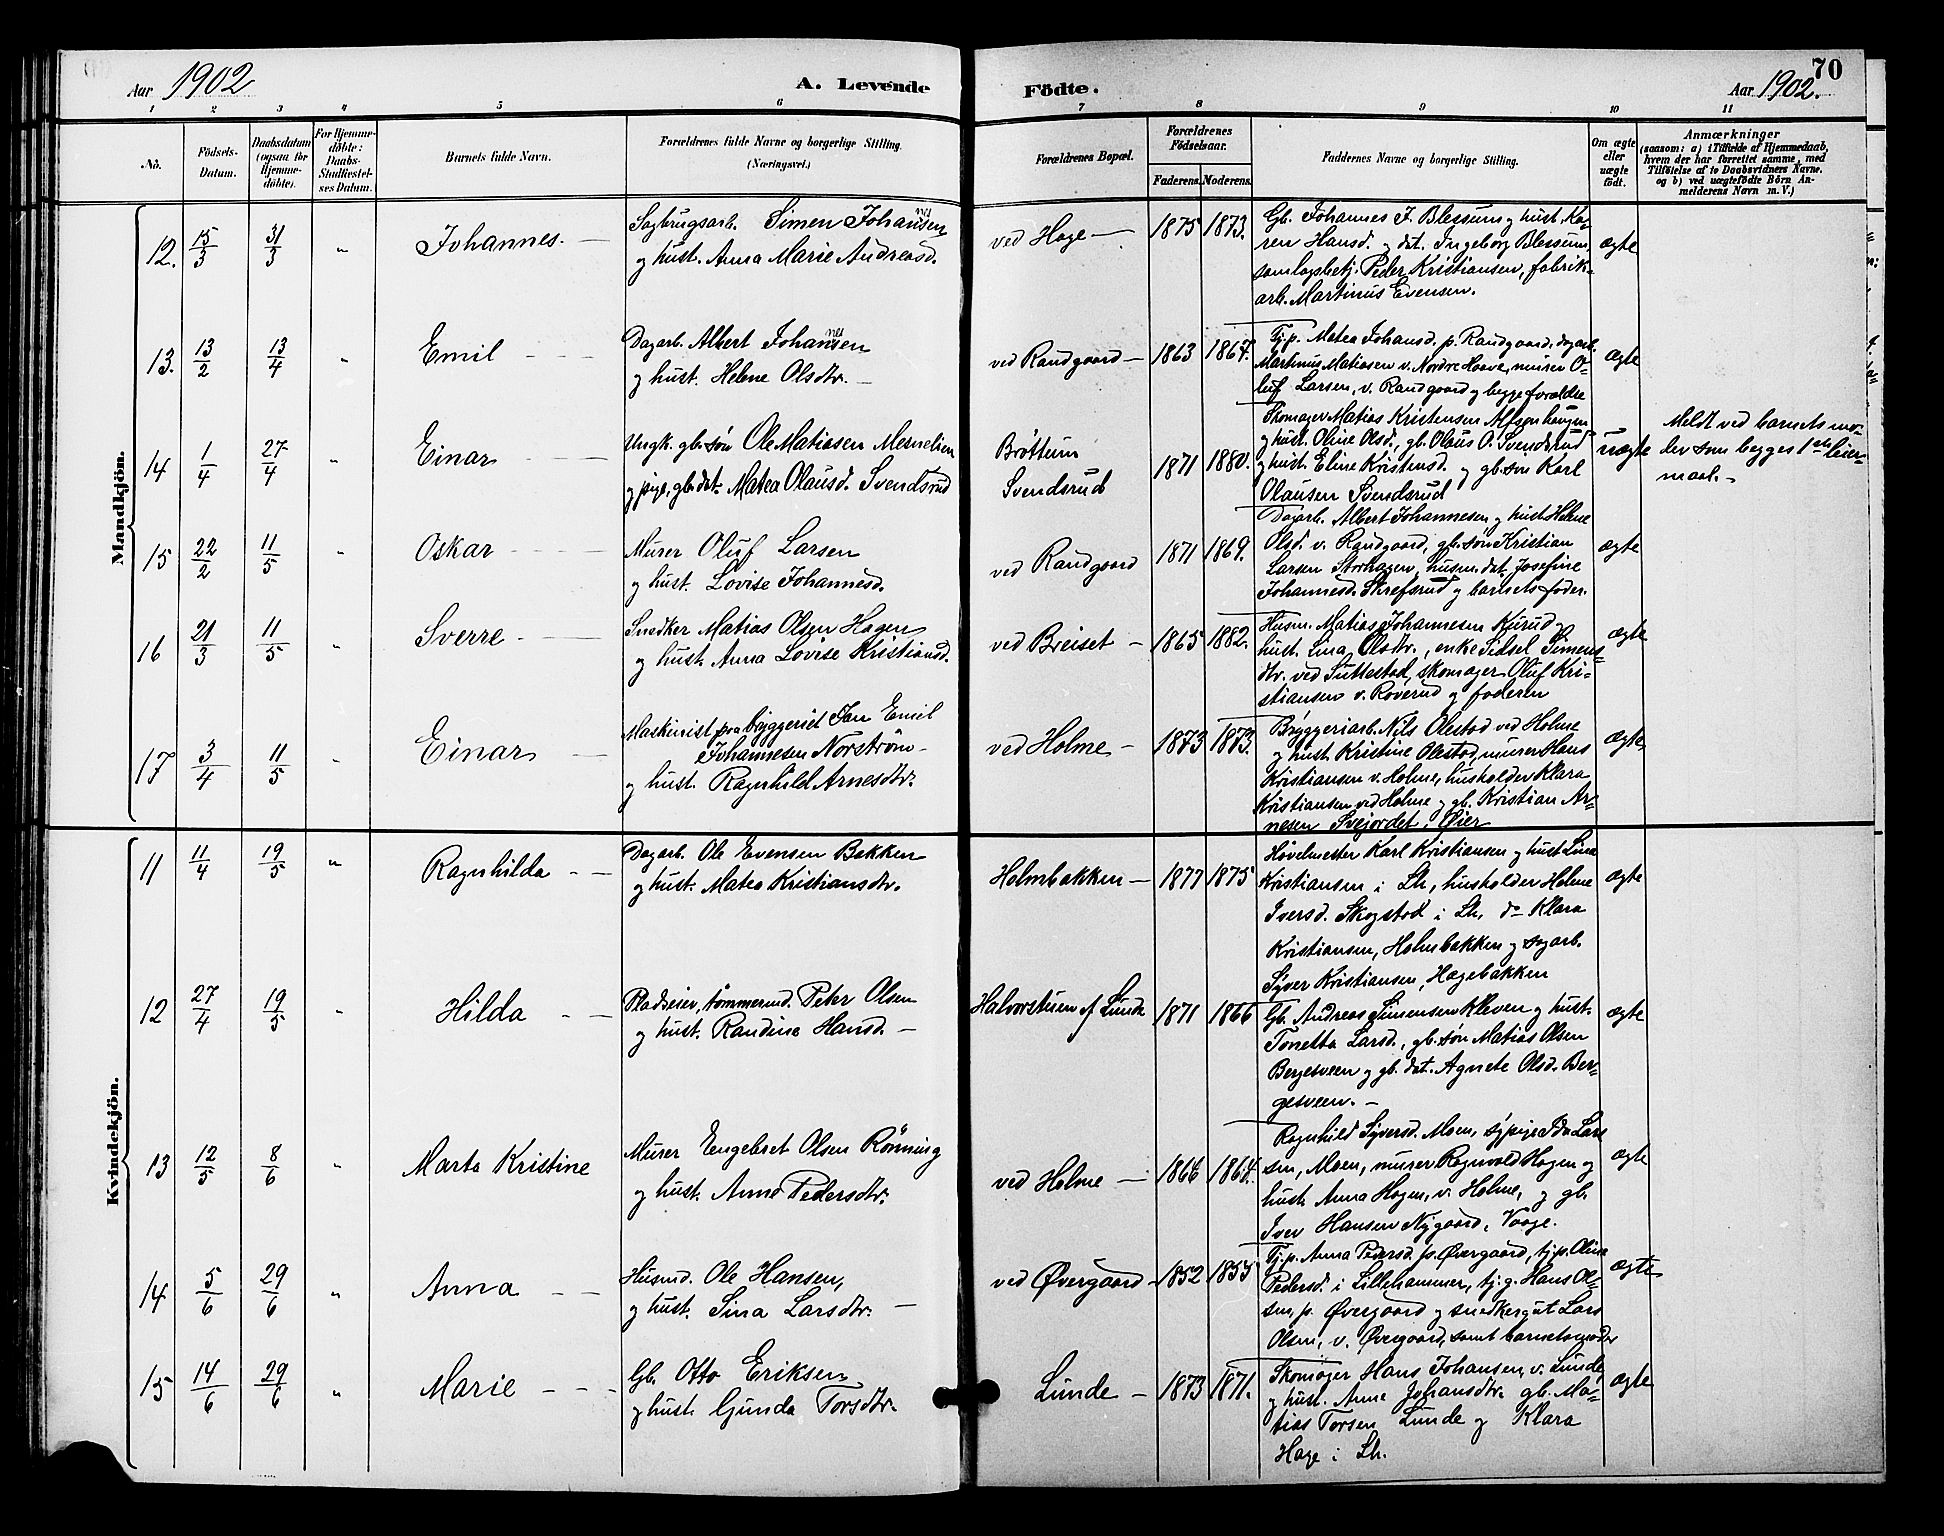 Aar 1902
A. Levende
Födte.
70
Aar 1902.
1 2 3 4 5 6 7 8 9 10 11
No.
Födsels-
Datum.
Daabsdatum
(ogsaa for
Hjemme-
döbte).
For Hjemme-
döbte:
Daabs-
Stadfæstel-
ses Datum.
Barnets fulde Navn.
Forældrenes fulde Navne og borgerlige Stilling.
(Næringsvei.)
Forældrenes Bopæl.
Forældrenes
Födselsaar.
Faderens. Moderens.
Faddernes Navne og borgerlige Stilling.
Om ægte
eller
uægte
født.
Anmærkninger
(saasom: a) i Tilfælde af Hjemmedaab,
hvem der har forrettet samme, med
Tilföielse af to Daabsvidners Navne,
og b) ved uægtefödte Börn An-
melderens Navn m. V.)
Mandkjön.
12. 15/3 31/3 " Johannes. —
Sagbrugsarb. Simen Johansen
nes
og hust. Anna Marie Andreasd.
ved Hage — 1875 1873.
Gb. Johannes J. Blessum og hust. Ka-
ren Hansd. og dat. Ingeborg Blessum,
samlagsbetj. Peder Kristiansen, fabrik-
arb. Martinus Evensen.
ægte
13. 13/2 13/4 " Emil — —
Dagarb. Albert Johansen
nes
og hust. Helene Olsdtr. —
ved Randgaard — 1863 1867.
Tj.p. Matea Johansd. p. Randgaard, dagarb.
Martinus Matiasen v. Nordre Haave, murer O-
luf Larsen, v. Randgaard og begge forældre
ægte
14 1/4 27/4 " Einar — —
Ungk. gb. søn Ole Matiasen Mesnelien
og pige, gb. dat. Matea Olausd. Svendsrud
Bröttum
Svendsrud
1871 1880.
Skomager Matias Kristensen
og hust. Oline Olsd., gb. Olaus O. Svendsrud
og hust. Eline Kristensd. og gb. søn Karl
Olausen Svendsrud
uægte
Meldt ved barnets mo-
der som begges 1ste leier-
maal. —
15 22/2 11/5 " Oskar — —
Murer Oluf Larsen
og hust. Lovise Johannesd.
ved Randgaard 1871 1869.
Dagarb. Albert Johannesen og hust. Helene
Olsd. v. Randgaard, gb. søn Kristian
Larsen Storhagen, husm. dat. Josefine
Johannesd. Skrefsrud og barnets fader.
ægte
16 21/3 11/5 " Sverre — —
Snedker Matias Olsen Hagen
og hust. Anna Lovise Kristiansd.
ved Breiset — 1865 1882.
Husm. Matias Johannesen Kurud og
hust. Lina Olsdtr., enke Sidsel Simens-
dtr. ved Suttestad, skomager Oluf Kri-
stiansen v. Roverud og faderen
ægte
17 3/4 11/5 " Einar —
Maskinist paa bryggeriet Jan Emil
Johannesen Norström —
og hust. Ragnhild Arnesdtr.
ved Holme — 1873 1873.
Bryggeriarb. Nils Olestad ved Holme
og hust. Kristine Olestad, murer Hans
Kristiansen v. Holme, husholder Klara
Kristiansen ved Holme og gb. Kristian Ar-
nesen Svejordet, Øier
ægte
Kvindekjön.
11 11/4 19/5 " Ragnhilda — —
Dagarb. Ole Evensen Bakken
og hust. Matea Kristiansdtr.
Holmbakken — 1877 1875
Hövelmester Karl Kristiansen og hust. Lina
Kristiansen i Lh., husholder Helene
Iversd. Skogstad i Lh. do Klara
Kristiansen, Holmbakken og sagarb.
Syver Kristiansen, Hagebakken
ægte
12 27/4 19/5 " Hilda — —
Pladseier, tömmermd. Peter Olsen
og hust. Randine Hansd. —
Halvorstuen af Lunde 1871 1866
Gb. Andreas Simensen Kleven og hust.
Tonetta Larsd., gb. søn Matias Olsen
Bergesveen og gb. dat. Agnete Olsd. Ber-
gesveen. —
ægte
13 12/5 8/6 " Marta Kristine
Murer Engebret Olsen Rönning
og hust. Anne Pedersdtr.
ved Holme — 1866 1864.
Ragnhild Syversd. Moen, sypige Ida Lar-
sen, Moen, murer Ragnvald Hagen og
hust. Anna Hagen, v. Holme, og gb.
Iver Hansen Nygaard, Vaage.
ægte
14 5/6 29/6 " Anna — —
Husmd. Ole Hansen,
og hust. Sina Larsdtr. —
ved Øvergaard — 1852 1855
Tj.p. Anna Pedersd. p. Øvergaard, tj.p. Oline
Pedersd. i Lillehammer, tj.g. Hans Ol-
sen, p. Øvergaard og snedkergut Lars
Olsen, v. Øvergaard, samt barnets moder
ægte
15 14/6 29/6 " Marie — — —
Gb. Otto Eriksen
og hust. Gunda Torsdtr.
Lunde — 1873 1871.
Skomager Hans Johansen, v. Lunde,
og hust. Anne Johansdtr. gb. Ma-
tias Torsen Lunde og Klara
Hage i Lh.
ægte